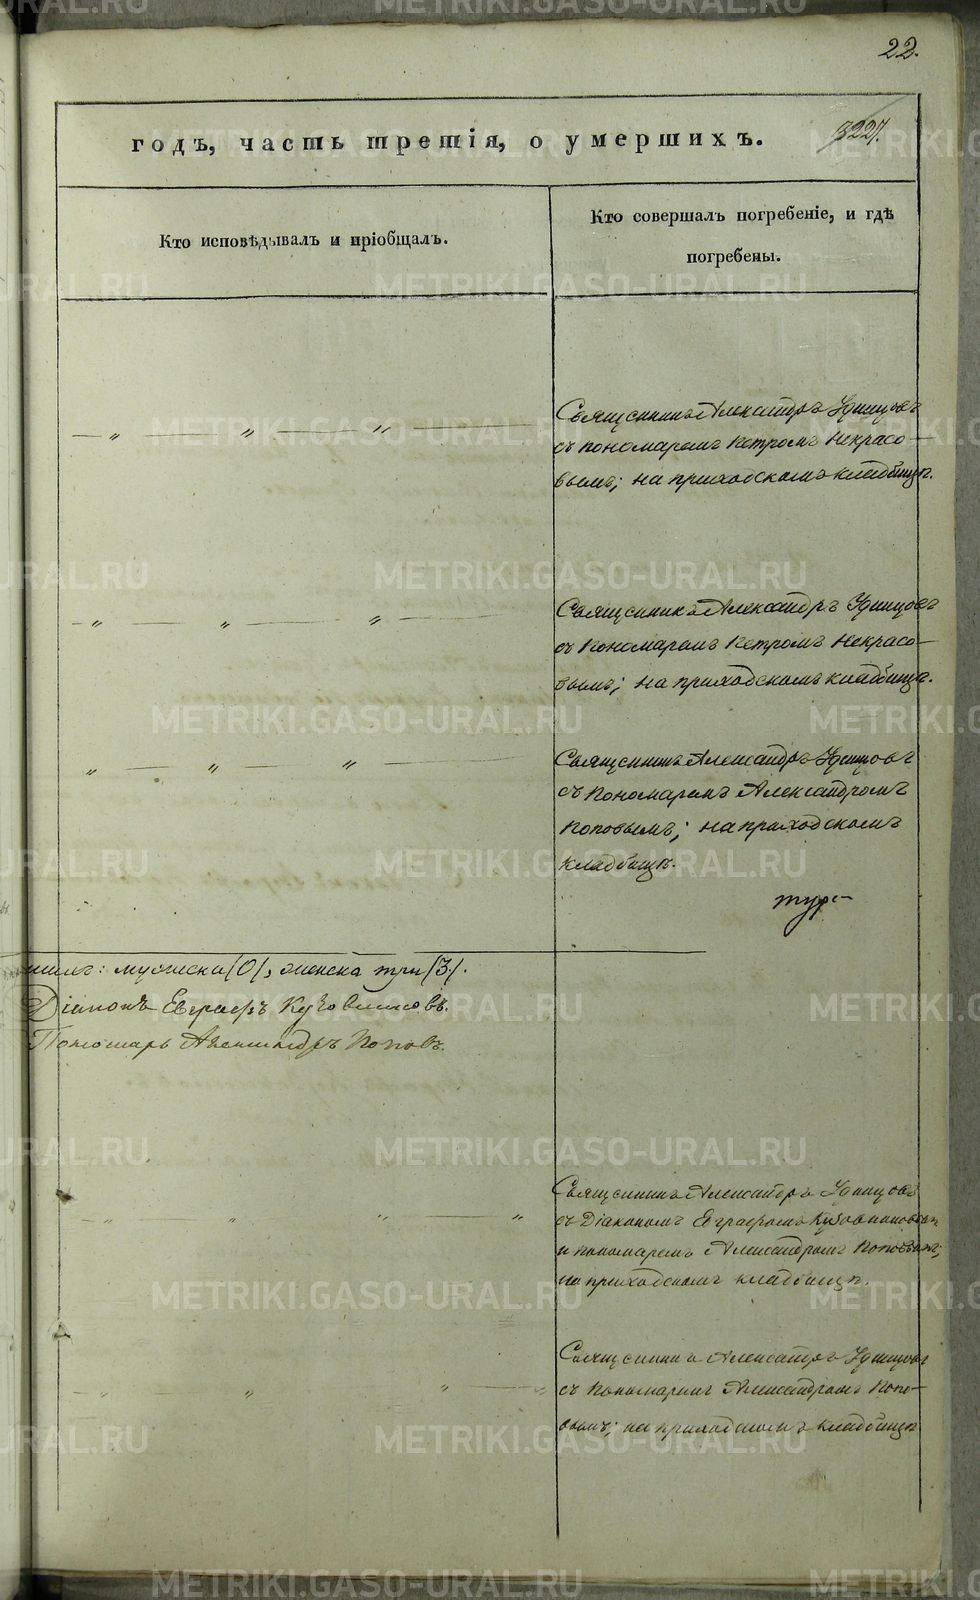 22.
годъ, часть третія, о умершихъ.
Кто исповѣдывалъ и пріобщалъ.
Кто совершалъ погребеніе, и гдѣ
погребены.
— „ — „ — „ —
Священникъ Александръ
съ пономаремъ Петромъ Некрасо—
вымъ; на приходскомъ кладбищѣ.
— „ — „ — „ —
Священникъ Александръ
съ Пономаремъ Петромъ Некрасо—
вымъ; на приходскомъ кладбищѣ.
„ — „ — „ —
Священникъ Александръ
съ Пономаремъ Александромъ
Поповымъ; на приходскомъ
кладбищѣ.
: мужеска /0/, женска три /3/.
Діаконъ Евграфъ
Пономарь Александръ Поповъ.
— „ — „ — „ — „
Священникъ Александръ
съ Діакономъ Евграфомъ
и пономаремъ Александромъ Поповымъ;
на приходскомъ кладбищѣ.
— „ — „ — „ — „
Священникъ Александръ
съ Пономаремъ Александромъ Попо—
вымъ; на приходскомъ кладбищѣ
METRIKI.GASO-URAL.RU